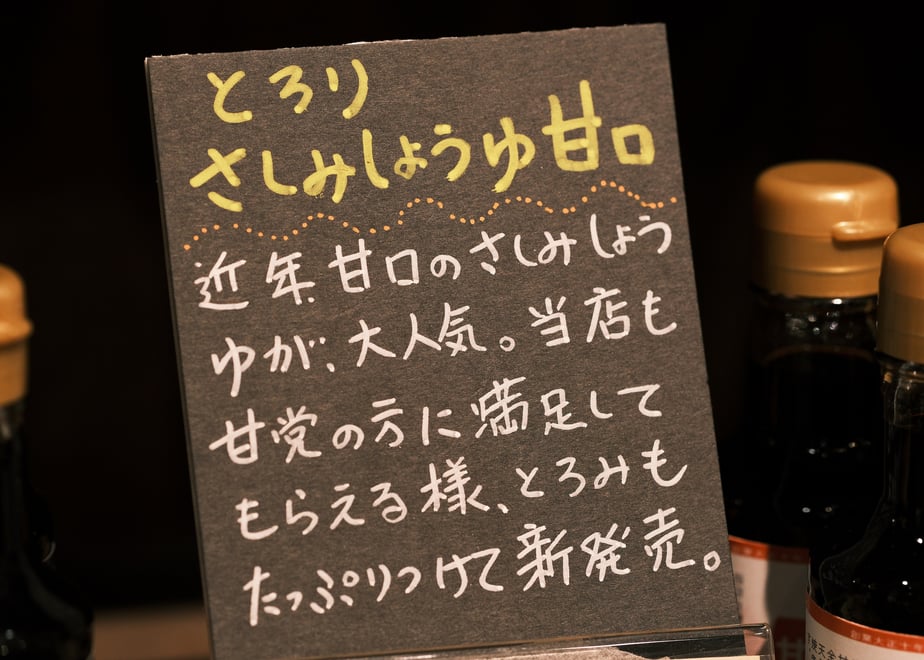 とろり
さしみしょうゆ甘口
近年甘口のさしみしょう
ゆが、大人気。当店も
甘党の方に満足して
もらえる様、とろみも
たっぷりつけて新発売。
創業大正十
甘